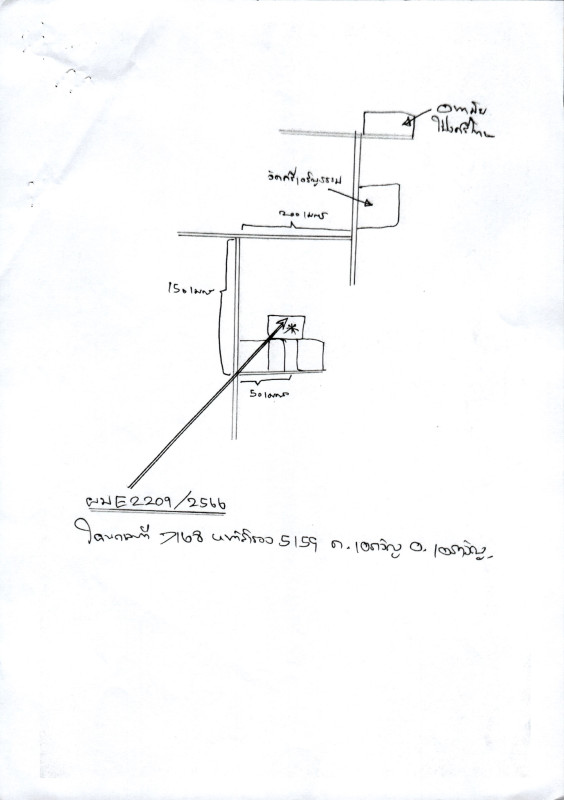 อนามัย
วัดศรีเจริญธรรม
200 เมตร
150 เมตร
50 เมตร
ผบE2209/2566
โฉนดที่ 7168 เลขที่ดิน 5159 ต. อ.